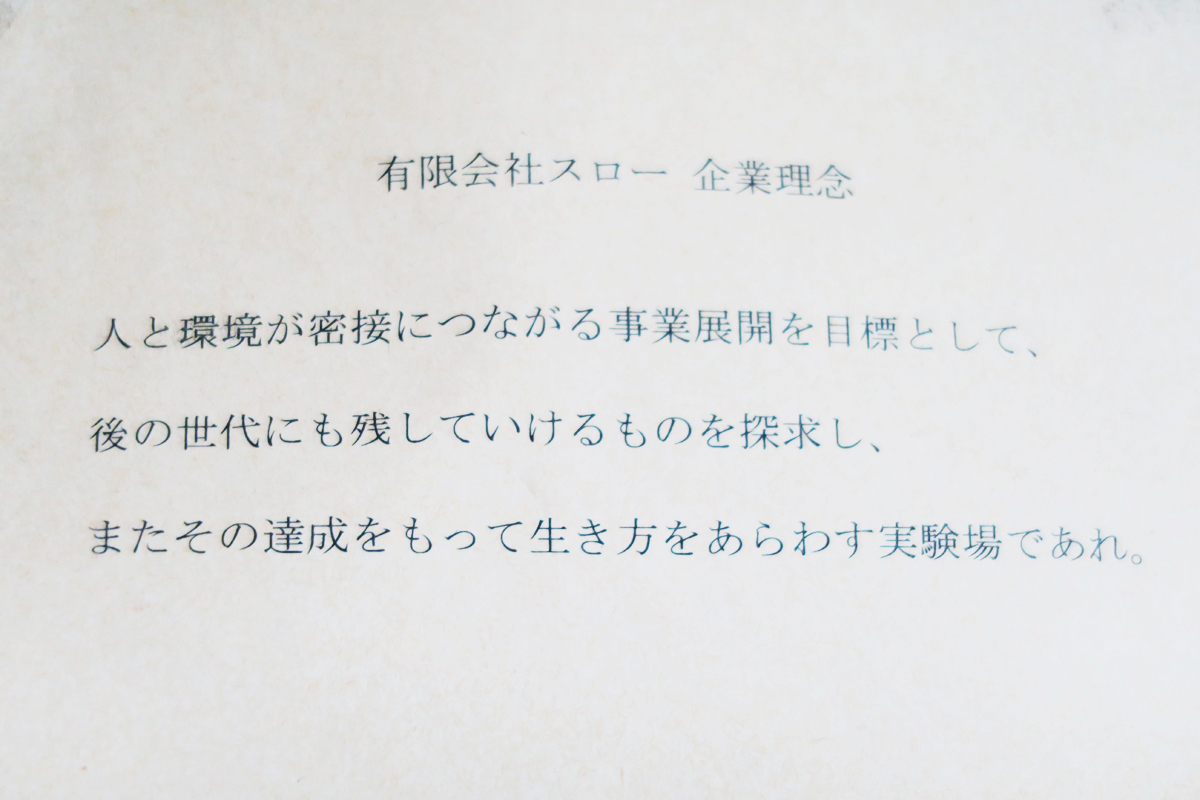 有限会社スロー 企業理念
人と環境が密接につながる事業展開を目標として、
後の世代にも残していけるものを探求し、
またその達成をもって生き方をあらわす実験場であれ。